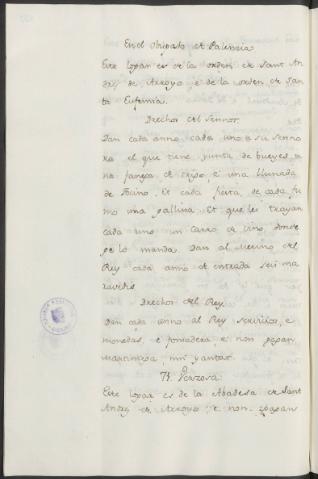 En el obispado de Palencia
Este logar es de la orden de Sant An
drés de Arroyo e de la orden de San
ta Eufemia.
Drechos del Sennor.
Dan cada anno cada uno a su senno
ra el que tiene yunta de bueyes u
na fanega de trigo e una
de tocino. Et cada fiesta de cada fu
mo una gallina. Et que lei trayan
cada uno un carro de vino donde
ge lo manda. Dan al Merino del
Rey cada anno de entrada seis ma
ravedis
Drechos del Rey.
Dan cada anno al Rey servicios, e
monedas, e fonsadera, e non pagan
martiniega, nin yantar.
Perazosa
Este logar es de la Abadesa de Sant
Andrés de Arroyo, e non pagan